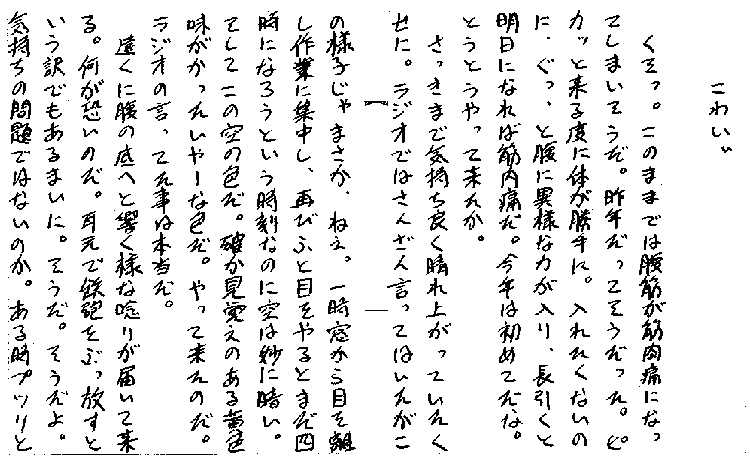 こわいぃ
くそっ。このままでは腹筋が筋肉痛になっ
てしまいそうだ。昨年だってそうだった。ピ
カッと来る度に体が勝手に。入れたくないの
に、ぐっ、と腹に異様な力が入り、長引くと
明日になれば筋肉痛だ。今年は初めてだな。
とうとうやって来たか。
さっきまで気持ち良く晴れ上がっていたく
せに。ラジオではさんざん言ってはいたがこ
の様子じゃまさか、ねえ。一時窓から目を離
し作業に集中し、再びふと目をやるとまだ四
時になろうという時刻なのに空は妙に暗い。
そしてこの空の色だ。確か見覚えのある黄色
味がかったいやーな色だ。やって来たのだ。
ラジオの言ってた事は本当だ。
遠くに腹の底へと響く様な唸りが届いて来
る。何が恐いのだ。耳元で鉄砲をぶっ放すと
いう訳でもあるまいに。そうだ。そうだよ。
気持ちの問題ではないのか。ある時プツリと